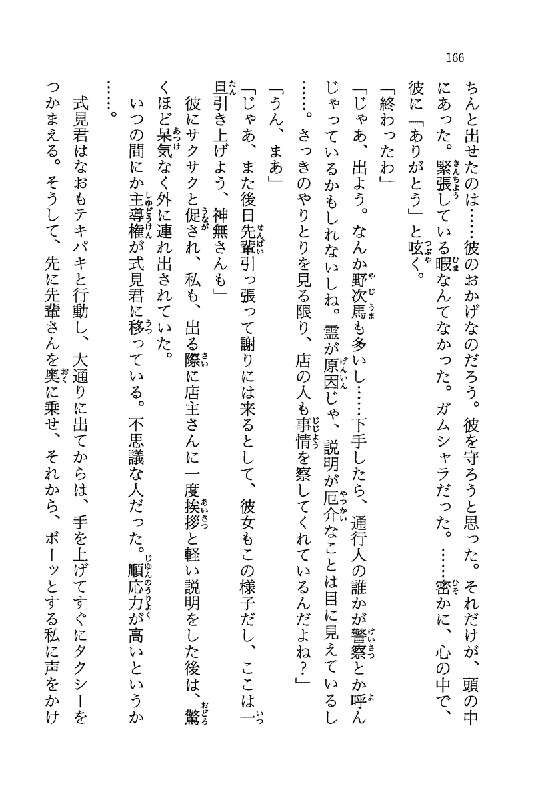 166
ちんと出せたのは……彼のおかげなのだろう。彼を守ろうと思った。それだけが、頭の中
にあった。緊張している暇なんてなかった。ガムシャラだった。……密かに、心の中で、
彼に「ありがとう」と呟く。
「終わったわ」
「じゃあ、出よう。なんか野次馬も多いし……下手したら、通行人の誰かが警察とか呼ん
じゃっているかもしれないしね。霊が原因じゃ、説明が厄介なことは目に見えているし
……。さっきのやりとりを見る限り、店の人も事情を察してくれているんだよね？」
「うん、まあ」
「じゃあ、また後日先輩引っ張って謝りには来るとして、彼女もこの様子だし、ここは一
旦引き上げよう、神無さんも」
彼にサクサクと促され、私も、出る際に店主さんに一度挨拶と軽い説明をした後は、驚
くほど呆気なく外に連れ出されていた。
いつの間にか主導権が式見君に移っている。不思議な人だった。順応力が高いというか
……。
式見君はなおもテキパキと行動し、大通りに出てからは、手を上げてすぐにタクシーを
つかまえる。そうして、先に先輩さんを奥に乗せ、それから、ボーッとする私に声をかけ